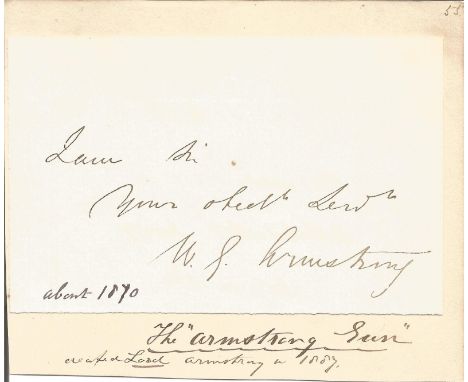 55
I am Sir
Your obedt Servt
W. G. Armstrong
about 1870
The "Armstrong Gun"
created Lord Armstrong in 1887.